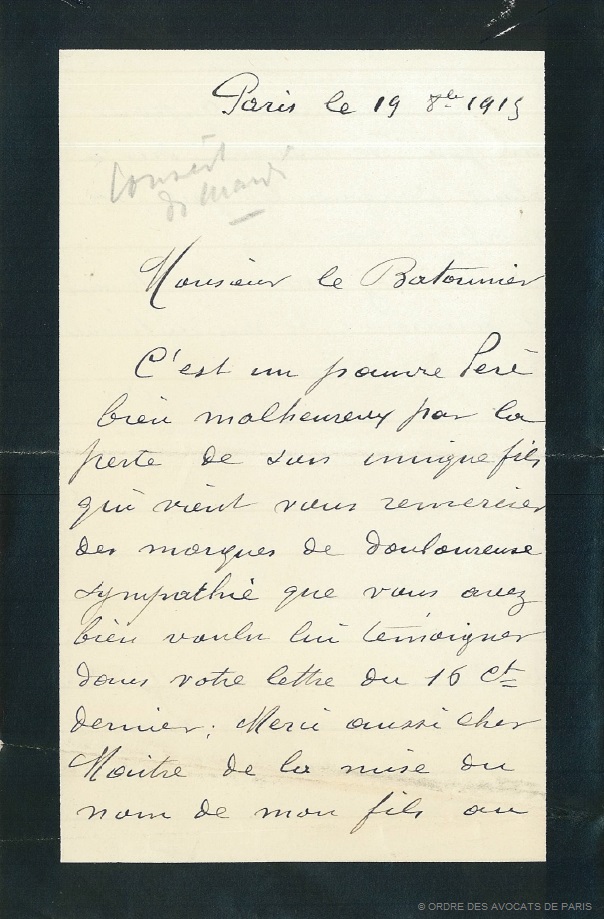 Paris le 19 8bre 1915
Conseil
de mardi
Monsieur le Batonnier
C'est un pauvre Père
bien malheureux par la
perte de son unique fils
qui vient vous remercier
des marques de douloureuse
sympathie que vous avez
bien voulu lui témoigner
dans votre lettre du 16 Ct
dernier; Merci aussi cher
Maitre de la mise du
nom de mon fils au
© ORDRE DES AVOCATS DE PARIS